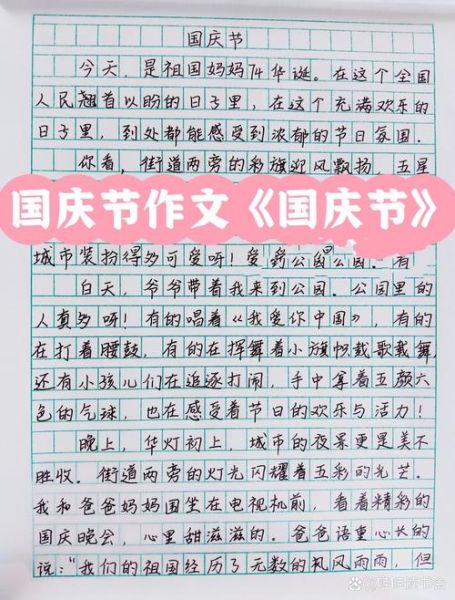 国庆节
今天，是祖国妈妈74华诞。在这个全国
人民翘首以盼的日子里，在这个充满欢乐的
日子里，到处都能感受到浓郁的节日氛围。
你看，街道两旁的彩旗迎风飘扬，五星
国庆节作文《国庆节》
城市装扮得多可爱呀！
白天，爷爷带着我来到公园。公园里的
人真多呀！有的唱着《我爱你中国》，有的
在打着腰鼓，有的在挥舞着小旗帜载歌载舞，
还有小孩儿们在追逐打闹，手中拿着五颜六
色的气球，也在感受着节日的欢乐与活力！
晚上，华灯初上，城市的夜景更是美不
胜收。街道两旁的灯光闪耀着五彩的光芒。
我和爸爸妈妈围坐在电视机前，看着精彩的
国庆晚会，心里甜滋滋的。爸爸语重心长的
说："我们的祖国经历了无数的风风雨雨，但